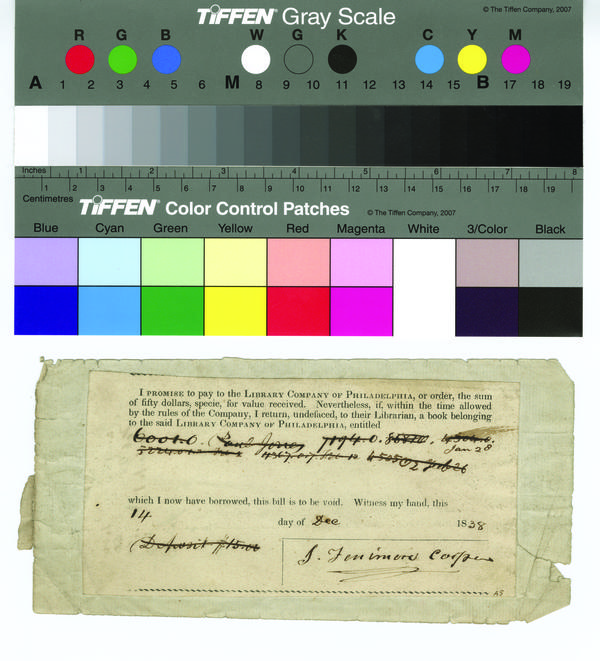 TIFFEN® Gray Scale
© The Tiffen Company, 2007
R G B W G K C Y M
A 1 2 3 4 5 6 M 8 9 10 11 12 13 14 15 B 17 18 19
Inches 1 2 3 4 5 6 7 8
Centimetres 1 2 3 4 5 6 7 8 9 10 11 12 13 14 15 16 17 18 19
TIFFEN® Color Control Patches
© The Tiffen Company, 2007
Blue Cyan Green Yellow Red Magenta White 3/Color Black
I PROMISE to pay to the LIBRARY COMPANY OF PHILADELPHIA, or order, the sum
of fifty dollars, specie, for value received. Nevertheless, if, within the time allowed
by the rules of the Company, I return, undefaced, to their Librarian, a book belonging
to the said LIBRARY COMPANY OF PHILADELPHIA, entitled
Paul Jones
Jan 28
which I now have borrowed, this bill is to be void. Witness my hand, this
14 day of Dec 1838
Deposit $15.00
J. Fenimore Cooper